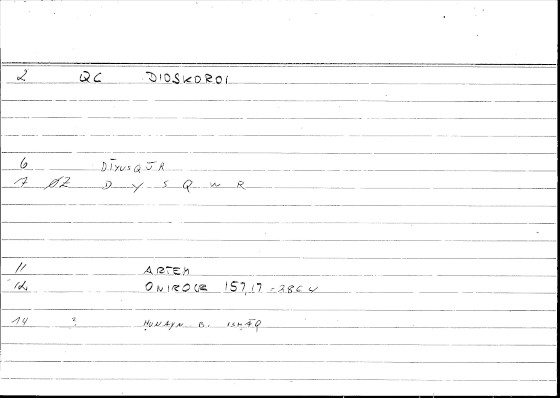 2 QC DIOSKOROI
6 DĪYUSQŪR
7 ØZ D Y S Q W R
11 ARTEM
12 ONIROCR 157,17
14 ? ḤUNAYN B. ISḤĀQ